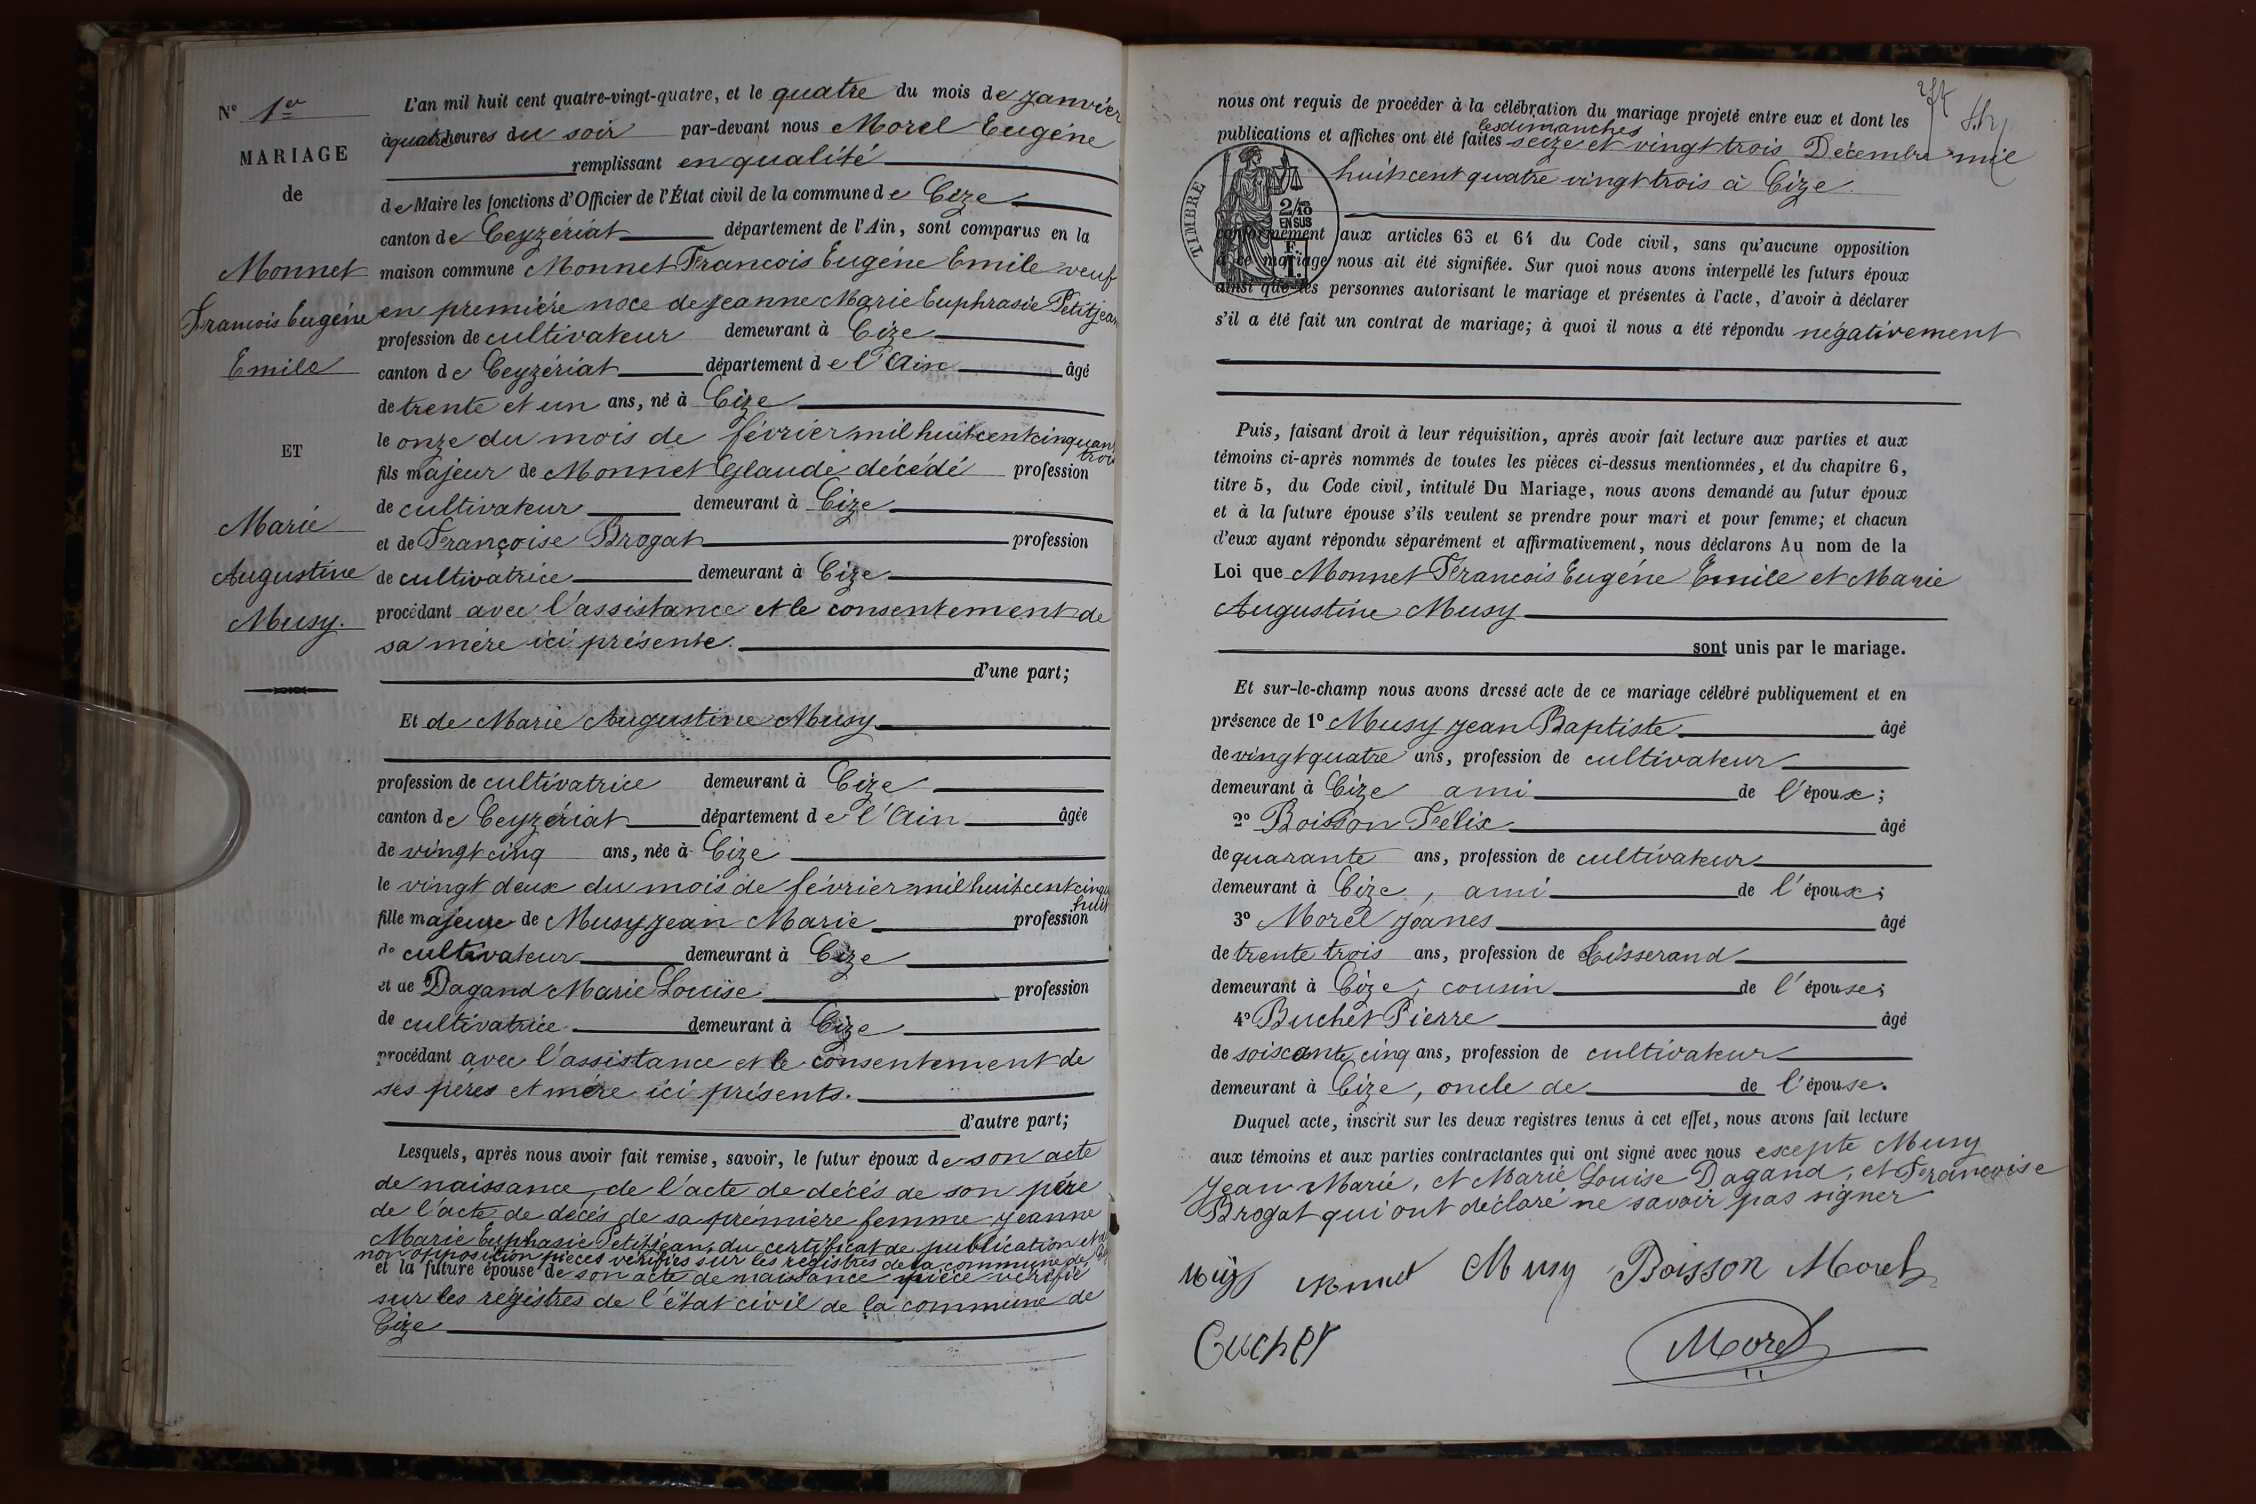 N° 1er
MARIAGE
de
Monnet
Francois Eugéne
Emile
ET
Marie
Augustine
Musy.
L'an mil huit cent quatre-vingt-quatre, et le quatre du mois de Janvier
à quatre heures du soir par-devant nous Morel Eugéne
remplissant en qualité
de Maire les fonctions d'Officier de l'État civil de la commune de Cize
canton de Ceyzériat département de l'Ain, sont comparus en la
maison commune Monnet Francois Eugéne Emile veuf
en premiére noce de Jeanne Marie Euphrasie Petitjean
profession de cultivateur demeurant à Cize
canton de Ceyzériat département de l'Ain âgé
de trente et un ans, né à Cize
le onze du mois de février mil huit cent cinquante
trois
fils majeur de Monnet Glaude décédé profession
de cultivateur demeurant à Cize
et de Françoise Brogat profession
de cultivatrice demeurant à Cize
procédant avec l'assistance et le consentement de
sa mére ici présente.
d'une part;
Et de Marie Augustine Musy
profession de cultivatrice demeurant à Cize
canton de Ceyzériat département de l'Ain âgée
de vingt cinq ans, née à Cize
le vingt deux du mois de février mil huit cent cinqu
huit
fille majeure de Musy Jean Marie profession
de cultivateur demeurant à Cize
et de Dagand Marie Louise profession
de cultivatrice demeurant à Cize
procédant avec l'assistance et le consentement de
ses péres et mére ici présents.
d'autre part;
Lesquels, après nous avoir fait remise, savoir, le futur époux de son acte
de naissance, de l'acte de décés de son pére
de l'acte de décés de sa prémière femme Jeanne
Marie Euphasie Petitjean, du certificat de publication et de
non opposition pieces vérifiés sur les registres de la commune de
et la future épouse de son acte de naissance pièce vérifié
sur les régistres de l'état civil de la commune de
Cize
nous ont requis de procéder à la célébration du mariage projeté entre eux et dont les
les dimanches
publications et affiches ont été faites seize et vingt trois Décembre mil
huit cent quatre vingt trois à Cize
TIMBRE
2/10
EN SUS
conformément aux articles 63 et 64 du Code civil, sans qu'aucune opposition
à ce mariage nous ait été signifiée. Sur quoi nous avons interpellé les futurs époux
ainsi que les personnes autorisant le mariage et présentes à l'acte, d'avoir à déclarer
s'il a été fait un contrat de mariage; à quoi il nous a été répondu négativement
Puis, faisant droit à leur réquisition, après avoir fait lecture aux parties et aux
témoins ci-après nommés de toutes les pièces ci-dessus mentionnées, et du chapitre 6,
titre 5, du Code civil, intitulé Du Mariage, nous avons demandé au futur époux
et à la future épouse s'ils veulent se prendre pour mari et pour femme; et chacun
d'eux ayant répondu séparément et affirmativement, nous déclarons Au nom de la
Loi que Monnet Francois Eugéne Emile et Marie
Augustine Musy
sont unis par le mariage.
Et sur-le-champ nous avons dressé acte de ce mariage célébré publiquement et en
présence de 1° Musy Jean Baptiste âgé
de vingt quatre ans, profession de cultivateur
demeurant à Cize ami de l'époux;
2° Boisson Felix âgé
de quarante ans, profession de cultivateur
demeurant à Cize, ami de l'époux;
3° Morel Joanes âgé
de trente trois ans, profession de Tisserand
demeurant à Cize, cousin de l'épouse;
4° Buchet Pierre âgé
de soiscante cinq ans, profession de cultivateur
demeurant à Cize, oncle de de l'épouse.
Duquel acte, inscrit sur les deux registres tenus à cet effet, nous avons fait lecture
aux témoins et aux parties contractantes qui ont signé avec nous escepte Musy
Jean Marie, et Marie Louise Dagand, et Francoise
Brogat qui ont déclaré ne savoir pas signer
Musy Boisson Morel
Morel